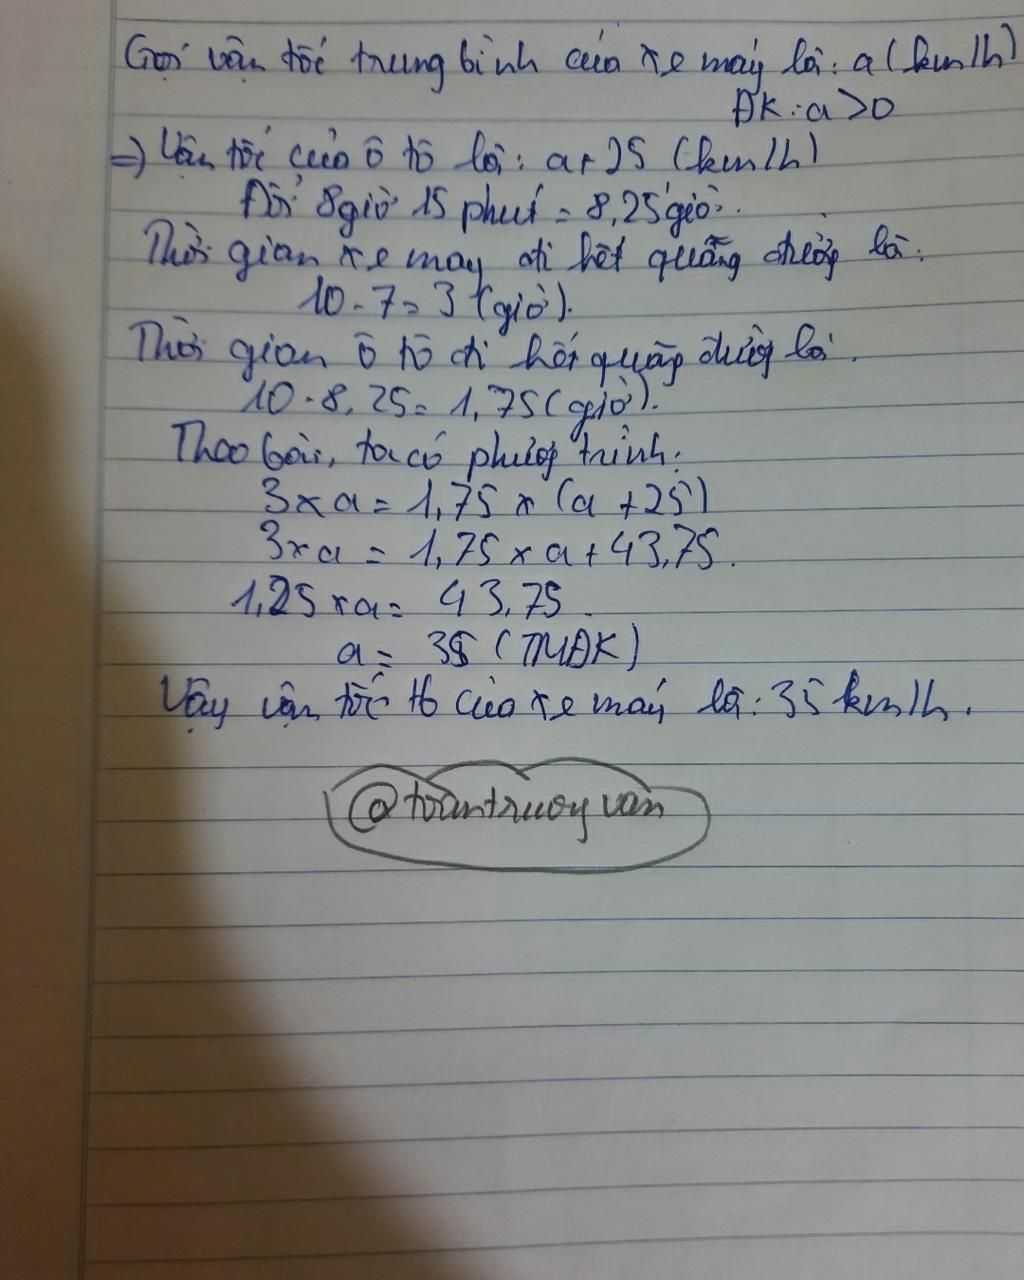 Gọi vận tốc trung bình của xe máy là: a (km/h)
ĐK: a > 0
=> Vận tốc của ô tô là: a + 25 (km/h)
Đổi 8 giờ 15 phút = 8,25 giờ.
Thời gian xe máy đi hết quãng đường là:
10 - 7 = 3 (giờ).
Thời gian ô tô đi hết quãng đường là.
10 - 8,25 = 1,75 (giờ).
Theo bài, ta có phương trình:
3 x a = 1,75 x (a + 25)
3 x a = 1,75 x a + 43,75.
1,25 x a = 43,75.
a = 35 (TMĐK)
Vậy vận tốc tb của xe máy là: 35 km/h.
@toantruongvan